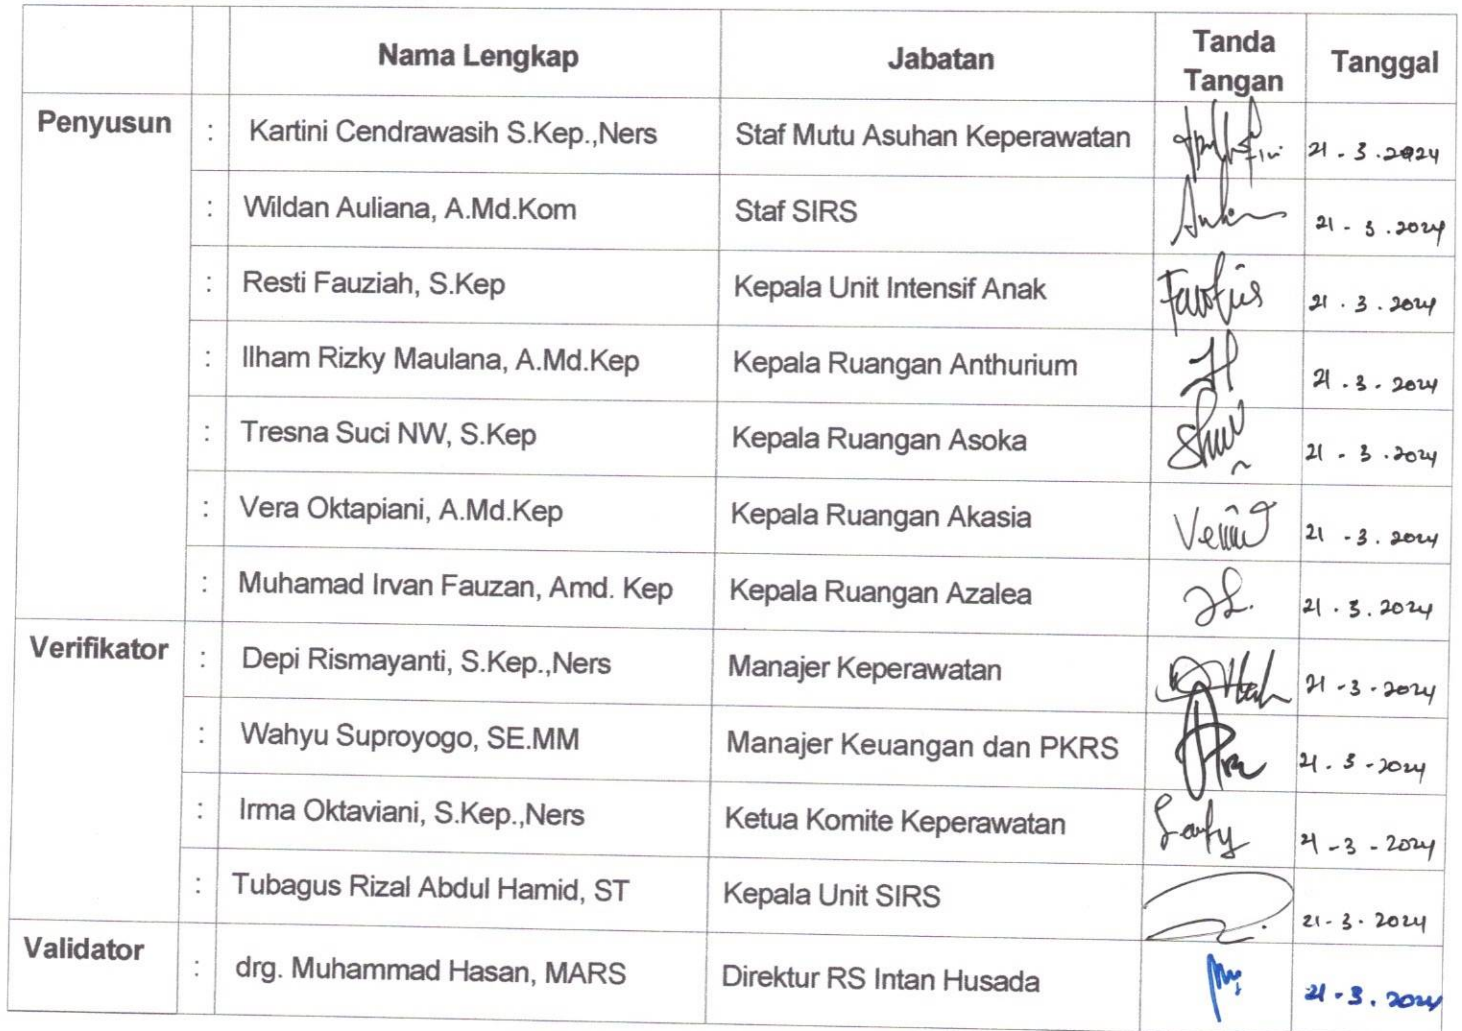 Nama Lengkap Jabatan Tanda Tangan Tanggal
Penyusun : Kartini Cendrawasih S.Kep.,Ners Staf Mutu Asuhan Keperawatan 21 - 3 . 2024
: Wildan Auliana, A.Md.Kom Staf SIRS 21 - 3 . 2024
: Resti Fauziah, S.Kep Kepala Unit Intensif Anak 21 . 3 . 2024
: Ilham Rizky Maulana, A.Md.Kep Kepala Ruangan Anthurium 21 . 3 . 2024
: Tresna Suci NW, S.Kep Kepala Ruangan Asoka 21 - 3 . 2024
: Vera Oktapiani, A.Md.Kep Kepala Ruangan Akasia 21 - 3 . 2024
: Muhamad Irvan Fauzan, Amd. Kep Kepala Ruangan Azalea 21 . 3 . 2024
Verifikator : Depi Rismayanti, S.Kep.,Ners Manajer Keperawatan 21 - 3 - 2024
: Wahyu Suproyogo, SE.MM Manajer Keuangan dan PKRS 21 . 3 - 2024
: Irma Oktaviani, S.Kep.,Ners Ketua Komite Keperawatan 21 - 3 - 2024
: Tubagus Rizal Abdul Hamid, ST Kepala Unit SIRS 21 - 3 - 2024
Validator : drg. Muhammad Hasan, MARS Direktur RS Intan Husada 21 - 3 . 2024